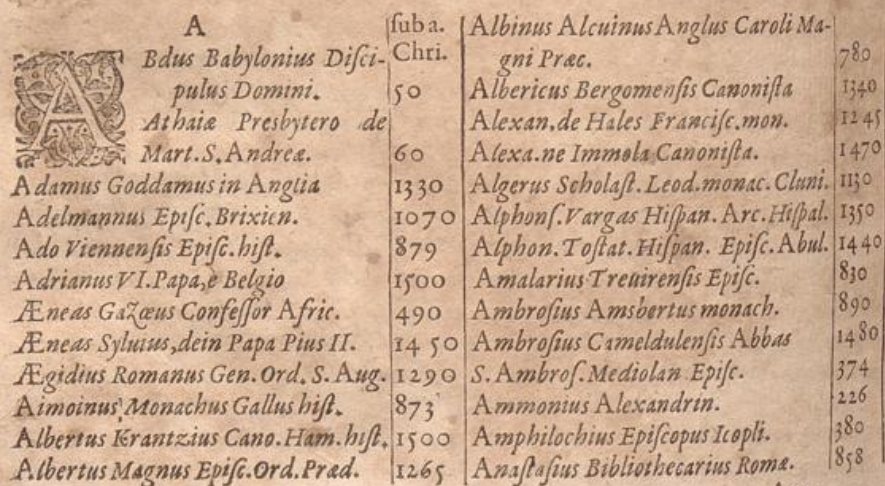 A
ſub a.
Chri.
ABdus Babylonius Diſci-
pulus Domini. 50
Athaiæ Presbytero de
Mart. S. Andreæ. 60
Adamus Goddamus in Anglia 1330
Adelmannus Epiſc. Brixien. 1070
Ado Viennenſis Epiſc. hiſt. 879
Adrianus VI. Papa, e Belgio 1500
Æneas Gazœus Confeſſor Afric. 490
Æneas Syluius, dein Papa Pius II. 1450
Ægidius Romanus Gen. Ord. S. Aug. 1290
Aimoinus, Monachus Gallus hiſt. 873
Albertus Krantzius Cano. Ham. hiſt. 1500
Albertus Magnus Epiſc. Ord. Præd. 1265
Albinus Alcuinus Anglus Caroli Ma-
gni Præc. 780
Albericus Bergomenſis Canoniſta 1340
Alexan. de Hales Franciſc. mon. 1245
Alexa. ne Immola Canoniſta. 1470
Algerus Scholaſt. Leod. monac. Cluni. 1130
Alphonſ. Vargas Hiſpan. Arc. Hiſpal. 1350
Alphon. Toſtat. Hiſpan. Epiſc. Abul. 1440
Amalarius Treuirenſis Epiſc. 830
Ambroſius Amsbertus monach. 890
Ambroſius Cameldulenſis Abbas 1480
S. Ambroſ. Mediolan Epiſc. 374
Ammonius Alexandrin. 226
Amphilochius Epiſcopus Icopli. 380
Anaſtaſius Bibliothecarius Romæ. 858